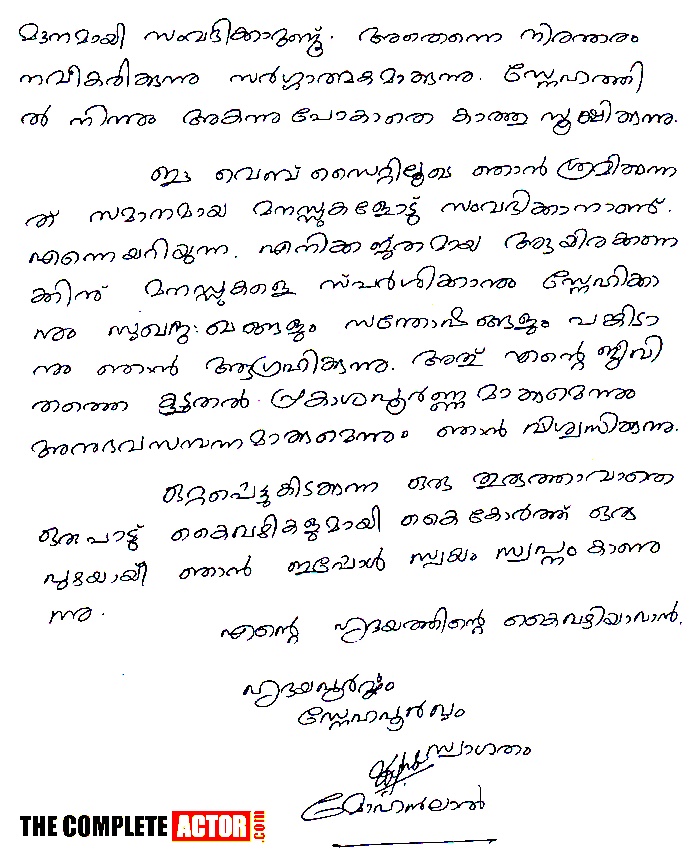 മൗനമായി സംവദിക്കാറുണ്ട്. അതെന്നെ നിരന്തരം
നവീകരിക്കുന്നു സർഗ്ഗാത്മകമാക്കുന്നു. സ്നേഹത്തി
ൽ നിന്നും അകന്നുപോകാതെ കാത്തു സൂക്ഷിക്കുന്നു.
ഈ വെബ് സൈറ്റിലൂടെ ഞാൻ ശ്രമിക്കുന്ന
ത് സമാനമായ മനസ്സുകളോട്ട് സംവദിക്കാനാണ്.
എന്നെയറിയുന്ന, എനിക്കജ്ഞാതമായ ആയിരക്കണ
ക്കിന് മനസ്സുകളെ സ്പർശിക്കാനും സ്നേഹിക്കാ
നും സുഖദുഃഖങ്ങളും സന്തോഷങ്ങളും പങ്കിടാ
നും ഞാൻ ആഗ്രഹിക്കുന്നു. അത് എന്റെ ജീവി
തത്തെ കൂടുതൽ പ്രകാശപൂർണ്ണമാക്കുമെന്നും
അനുഭവസമ്പന്നമാക്കുമെന്നും ഞാൻ വിശ്വസിക്കുന്നു.
ഒറ്റപ്പെട്ടുകിടക്കുന്ന ഒരു തുരുത്താവാതെ
ഒരുപാട്ട് കൈവഴികളുമായി കൈകോർത്ത് ഒരു
പുഴയായി ഞാൻ ഇപ്പോൾ സ്വയം സ്വപ്നം കാണു
ന്നു.
എന്റെ ഹൃദയത്തിന്റെ കൈവഴിയാവാൻ,
ഹൃദയപൂർവ്വം
സ്നേഹപൂർവ്വം
സ്വാഗതം
മോഹൻലാൽ
THE COMPLETE ACTOR.com